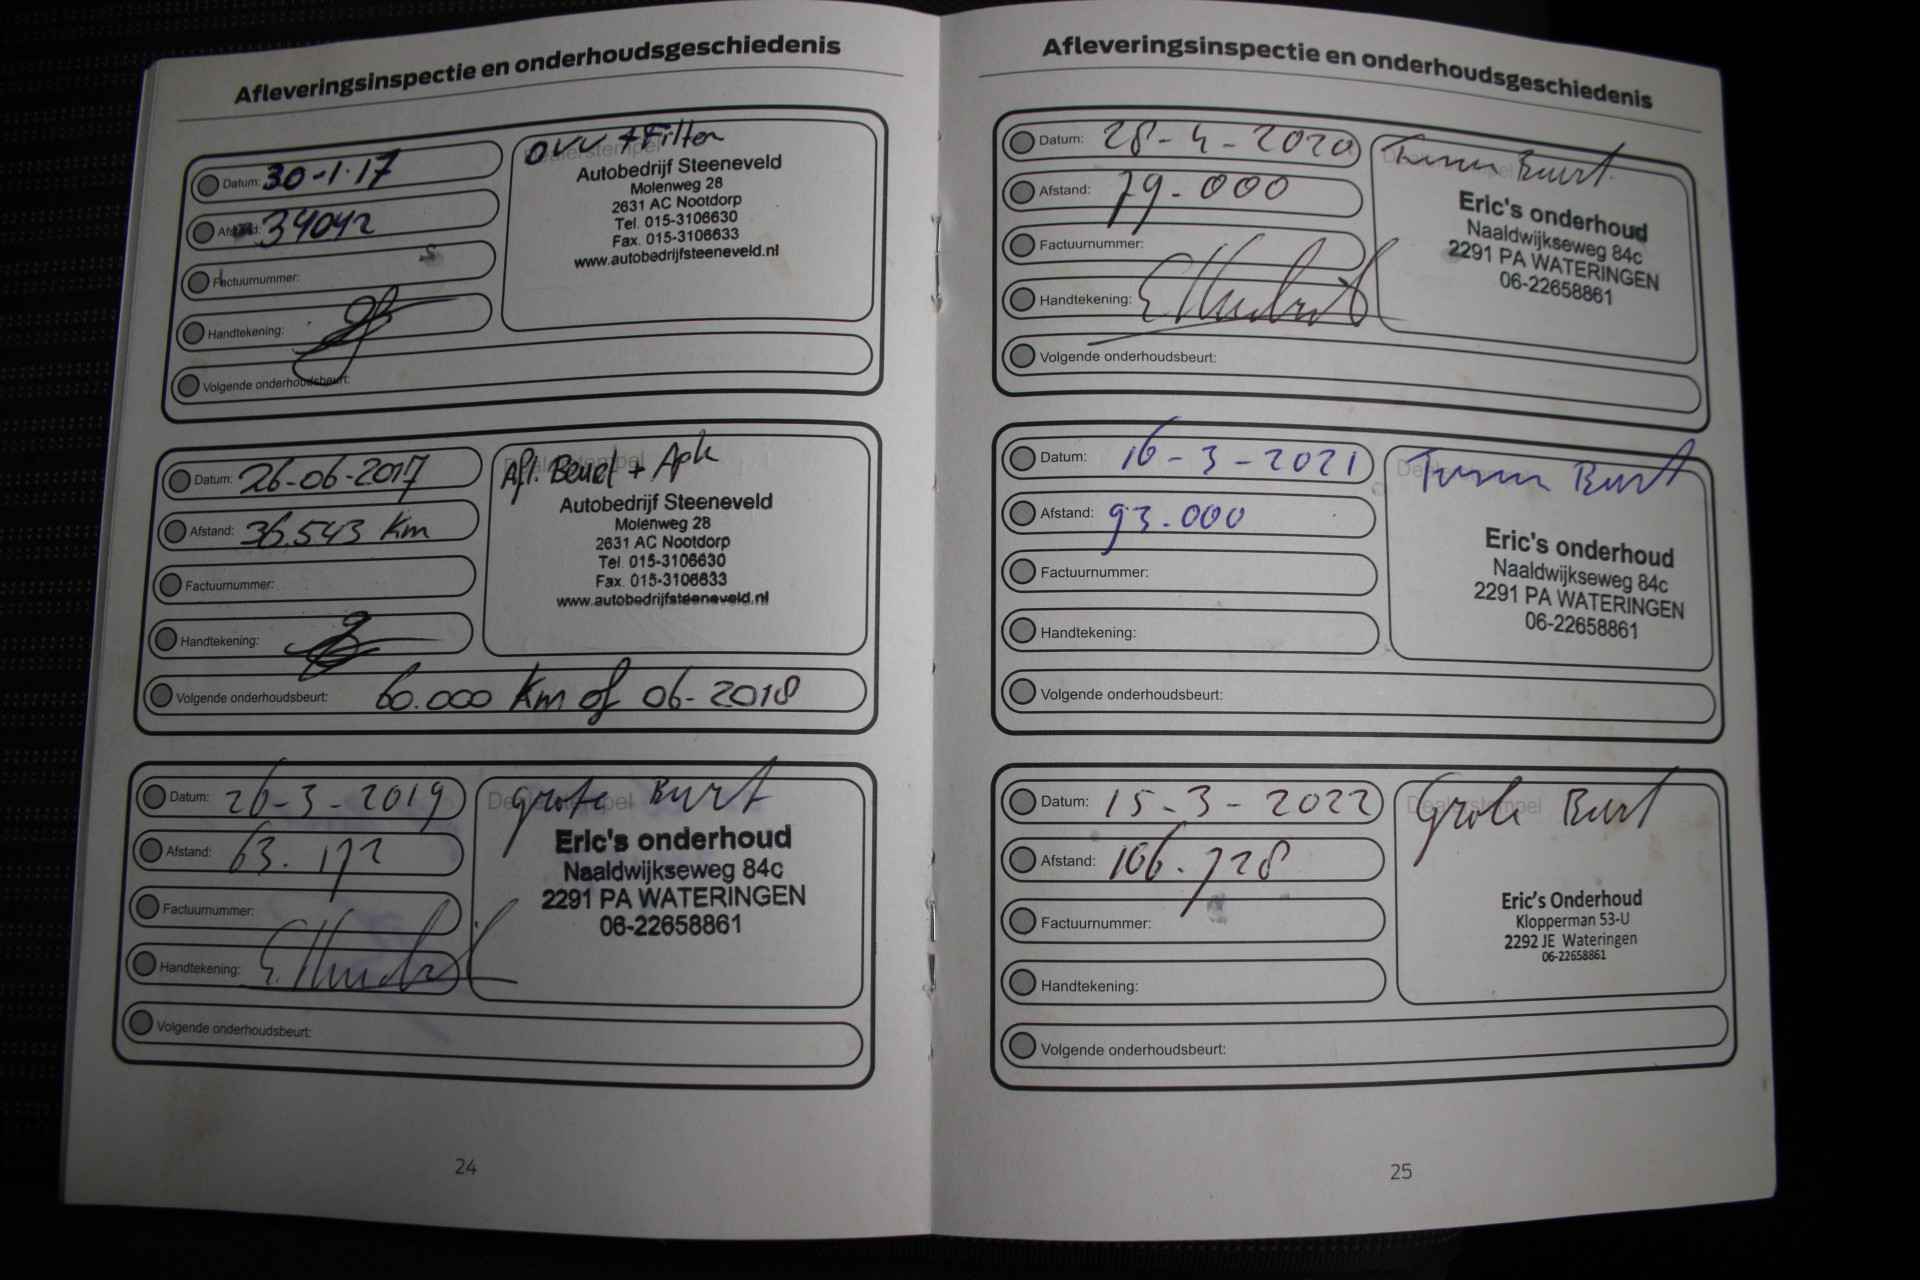 Afleveringsinspectie en onderhoudsgeschiedenis
Datum: 30-1-17
Afstand: 34042
Factuurnummer:
Handtekening:
Volgende onderhoudsbeurt:
+ Filter
Dealerstempel
Autobedrijf Steeneveld
Molenweg 28
2631 AC Nootdorp
Tel. 015-3106630
Fax. 015-3106633
www.autobedrijfsteeneveld.nl
Datum: 26-06-2017
Afstand: 36.543 Km
Factuurnummer:
Handtekening:
Volgende onderhoudsbeurt: 60.000 Km of 06-2018
Afl. Beurt + Apk
Dealerstempel
Autobedrijf Steeneveld
Molenweg 28
2631 AC Nootdorp
Tel. 015-3106630
Fax. 015-3106633
www.autobedrijfsteeneveld.nl
Datum: 26-3-2019
Afstand: 63.172
Factuurnummer:
Handtekening:
Volgende onderhoudsbeurt:
Dealerstempel
grote Burt
Eric's onderhoud
Naaldwijkseweg 84c
2291 PA WATERINGEN
06-22658861
24
Afleveringsinspectie en onderhoudsgeschiedenis
Datum: 28-4-2020
Afstand: 79.000
Factuurnummer:
Handtekening:
Volgende onderhoudsbeurt:
Burt
Eric's onderhoud
Naaldwijkseweg 84c
2291 PA WATERINGEN
06-22658861
Datum: 16-3-2021
Afstand: 93.000
Factuurnummer:
Handtekening:
Volgende onderhoudsbeurt:
Burt
Eric's onderhoud
Naaldwijkseweg 84c
2291 PA WATERINGEN
06-22658861
Datum: 15-3-2022
Afstand: 106.728
Factuurnummer:
Handtekening:
Volgende onderhoudsbeurt:
Dealerstempel
Grote Burt
Eric's Onderhoud
Klopperman 53-U
2292 JE Wateringen
06-22658861
25